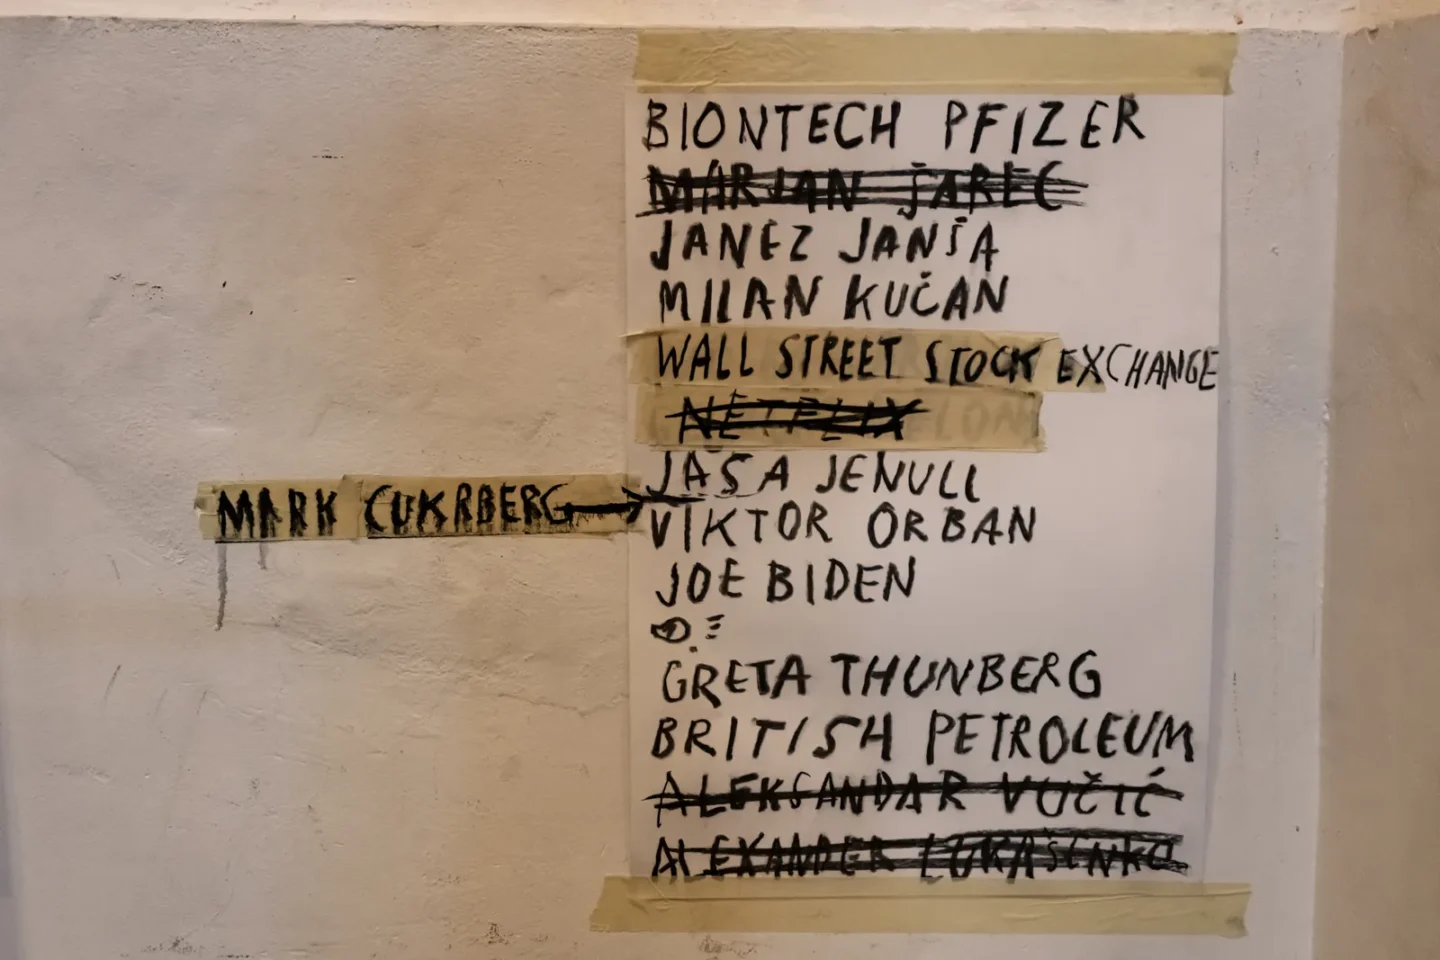 BIONTECH PFIZER
MARJAN ŠAREC
JANEZ JANŠA
MILAN KUČAN
WALL STREET STOCK EXCHANGE
NETFLIX
JAŠA JENULL
MARK CUKRBERG →
VIKTOR ORBAN
JOE BIDEN
GRETA THUNBERG
BRITISH PETROLEUM
ALEKSANDAR VUČIĆ
ALEXANDER LUKAŠENKO